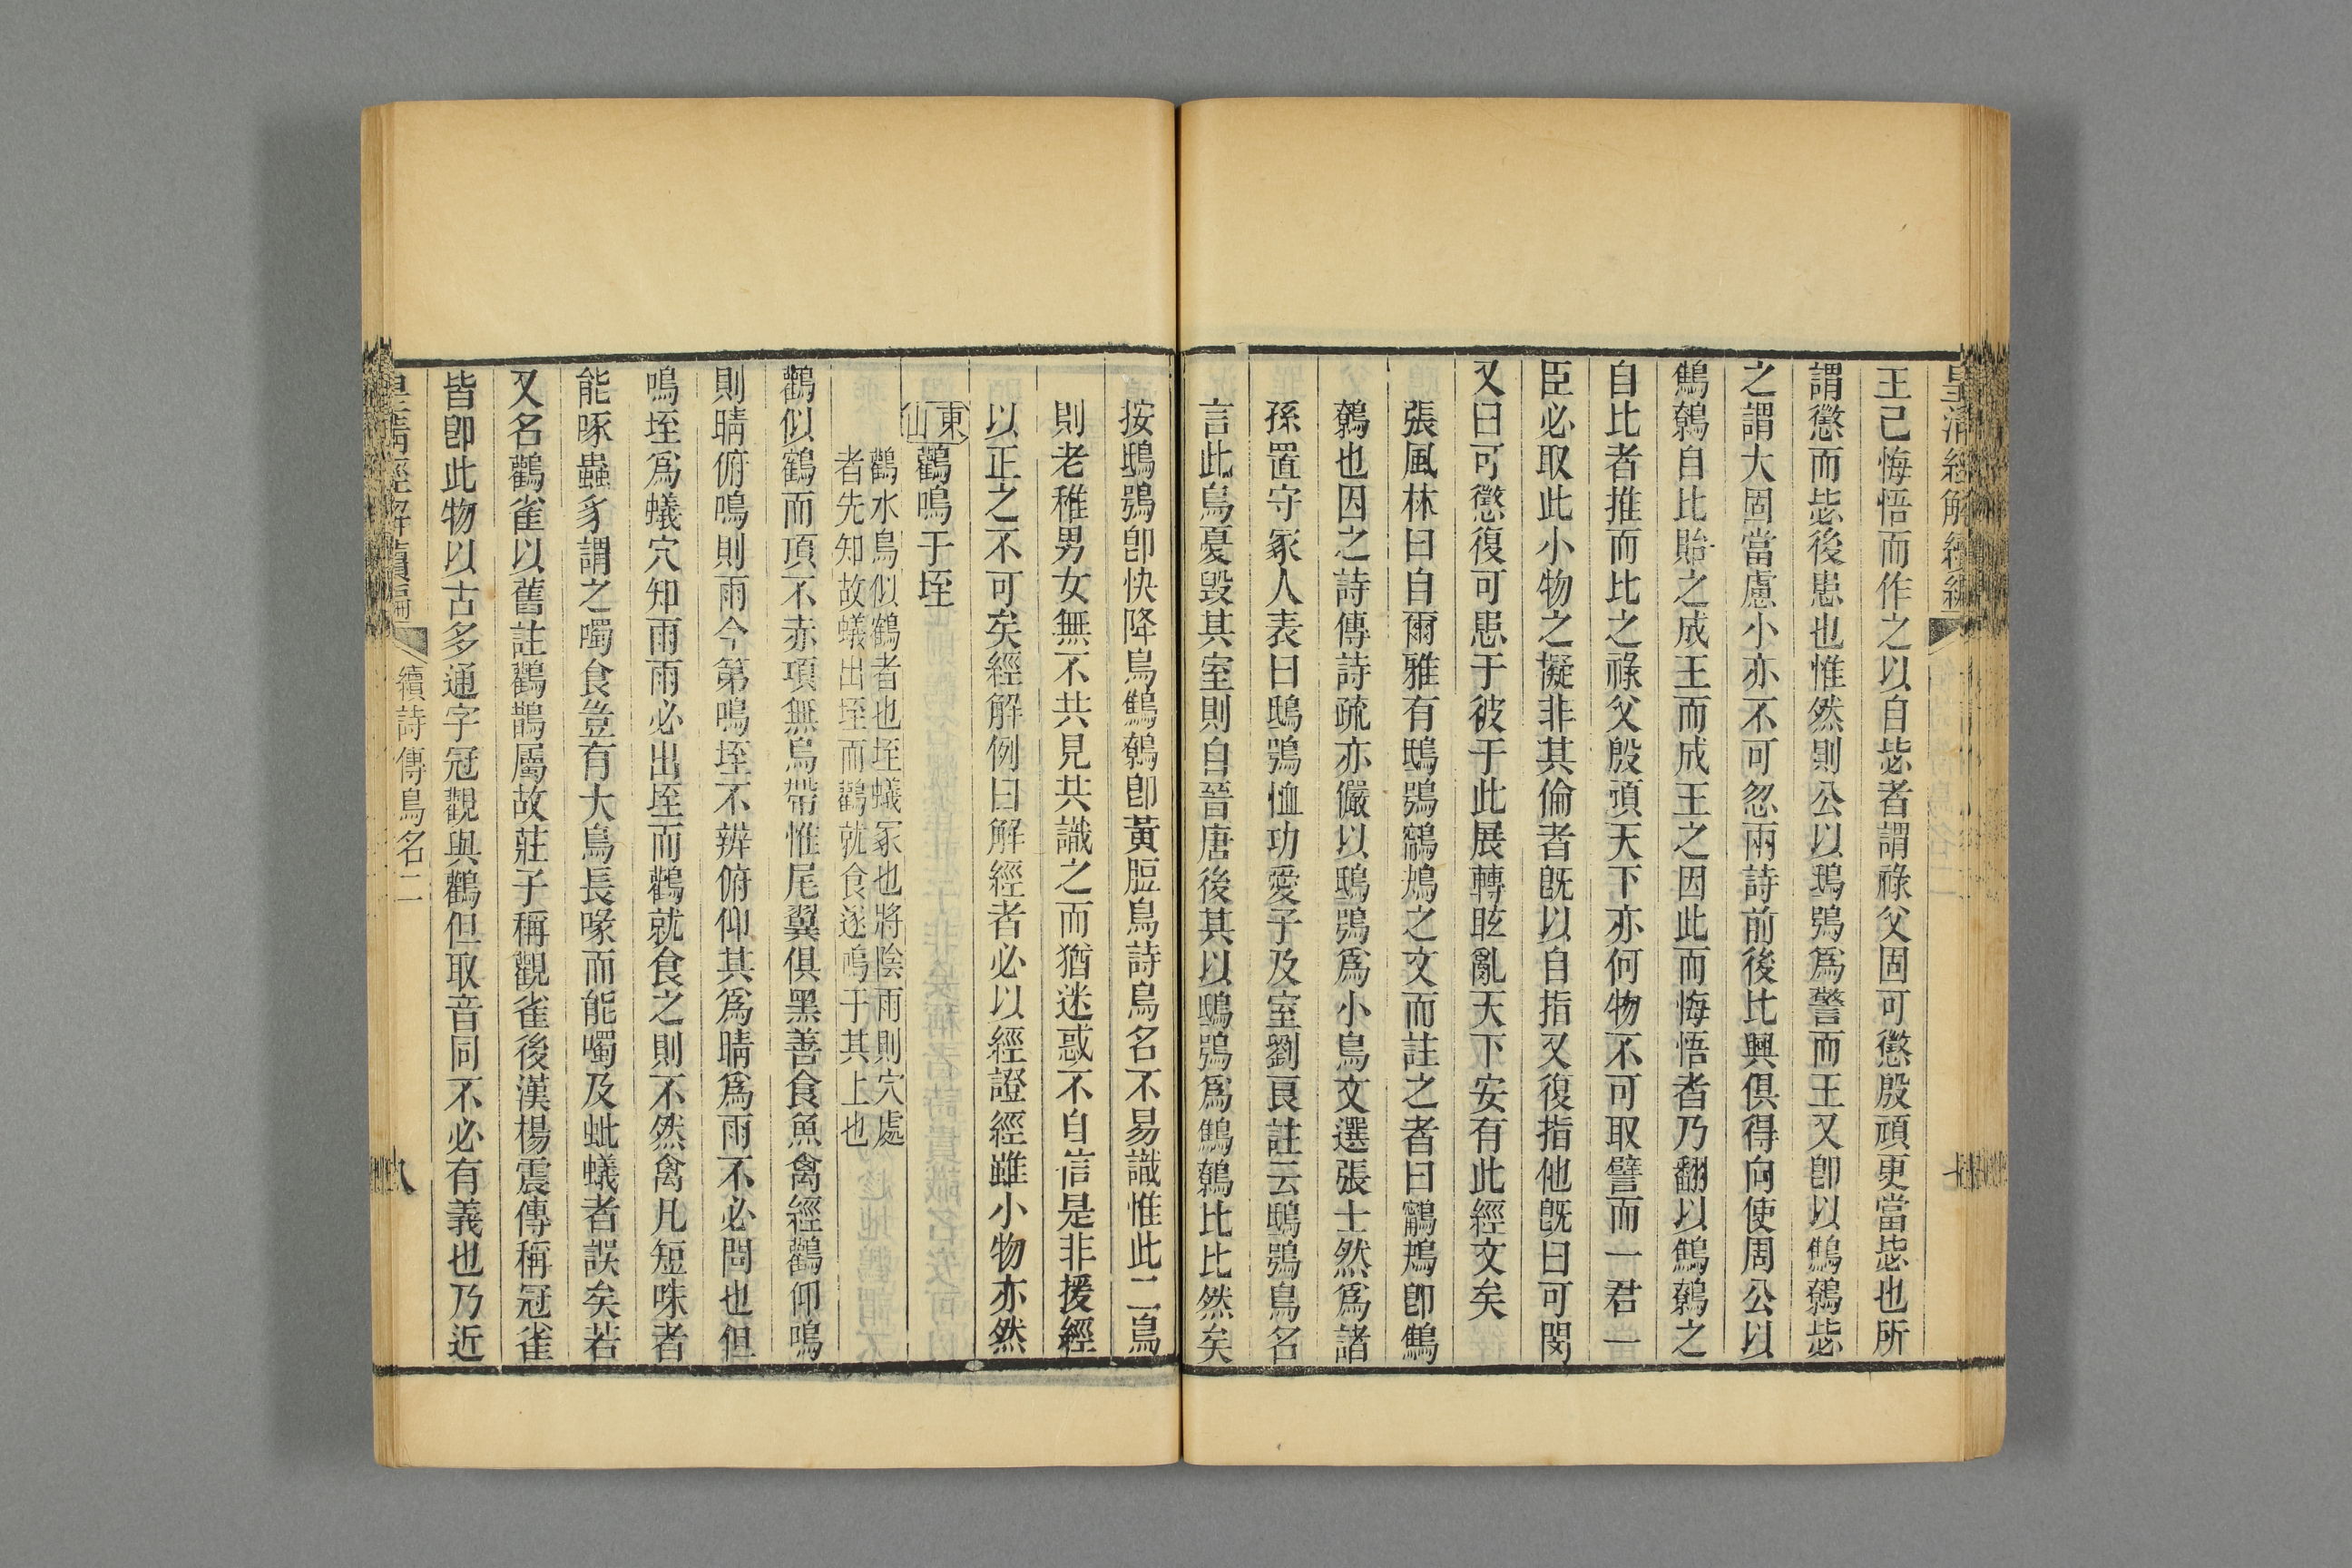 皇清經解續編
王已悔悟而作之以自毖者謂祿父固可懲殷頑更當毖也所
謂懲而毖後患也惟然則公以鴟鴞爲警而王又卽以鷦鷯毖
之謂大固當慮小亦不可忽兩詩前後比興俱得向使周公以
鷦鷯自比貽之成王而成王之因此而悔悟者乃翻以鷦鷯之
自比者推而比之祿父殷頑天下亦何物不可取譬而一君一
臣必取此小物之擬非其倫者旣以自指又復指他旣曰可閔
又曰可懲復可患于彼于此展轉眩亂天下安有此經文矣
張風林曰自爾雅有鴟鴞鸋鴂之文而註之者曰鸋鴂卽鷦
鷯也因之詩傳詩疏亦儼以鴟鴞爲小鳥文選張士然爲諸
孫置守冢人表曰鴟鴞恤功愛子及室劉良註云鴟鴞鳥名
言此鳥憂毀其室則自晉唐後其以鴟鴞爲鷦鷯比比然矣
按鴟鴞卽怏降鳥鷦鷯卽黃脰鳥詩鳥名不易識惟此二鳥
則老稚男女無不共見共識之而猶迷惑不自信是非援經
以正之不可矣經解例曰解經者必以經證經雖小物亦然
東山鸛鳴于垤
鸛水鳥似鶴者也垤蟻冢也將陰雨則穴處
者先知故蟻出垤而鸛就食遂鳴于其上也
鸛似鶴而頂不赤項無烏帶惟尾翼俱黑善食魚禽經鸛仰鳴
則晴俯鳴則雨今第鳴垤不辨俯仰其爲晴爲雨不必問也但
鳴垤爲蟻穴知雨雨必出垤而鸛就食之則不然禽凡短咮者
能啄蟲豸謂之噣食豈有大鳥長喙而能噣及蚍蟻者誤矣若
又名鸛雀以舊註鸛鵲屬故莊子稱觀雀後漢楊震傳稱冠雀
皆卽此物以古多通字冠觀與鸛但取音同不必有義也乃近
皇清經解續編
續詩傳鳥名二
八